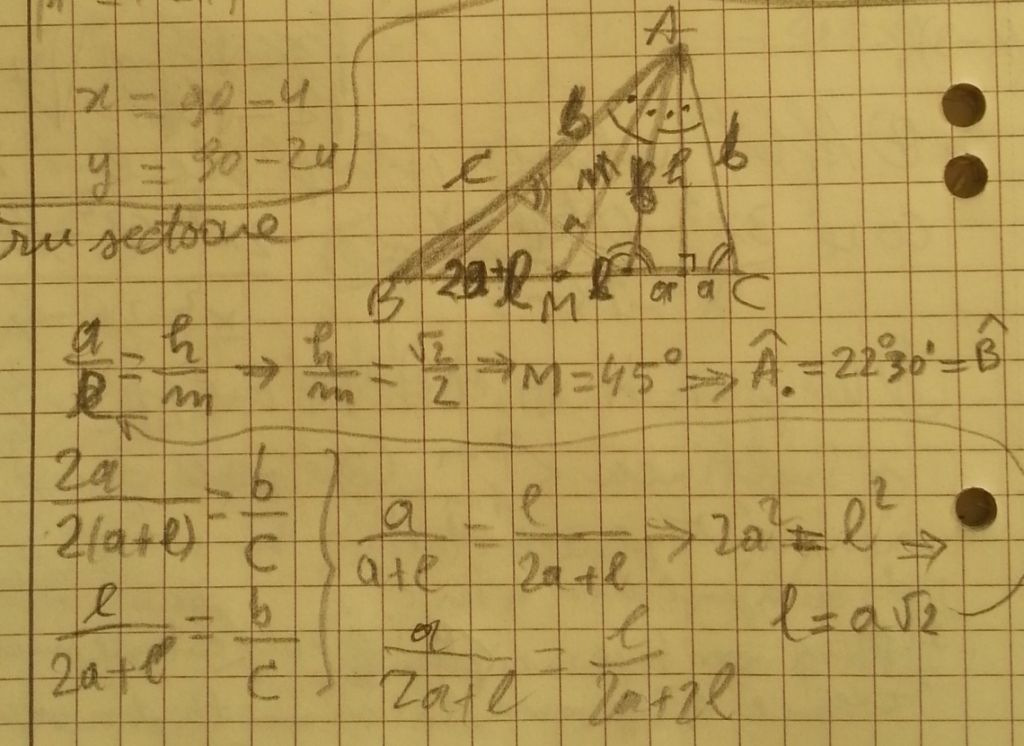 x = 90 - 4
y = 90 - 24
A
b
c
m
h
b
2a+l
l
a
a
B
M
C
a/l = h/m → h/m = √2/2 → M = 45° ⇒ Â. = 22°30' = B̂
2a/2(a+l) = b/c
l/2a+l = b/c
a/a+l = l/2a+l → 2a² = l² ⇒
l = a√2
a/2a+l = l/2a+2l